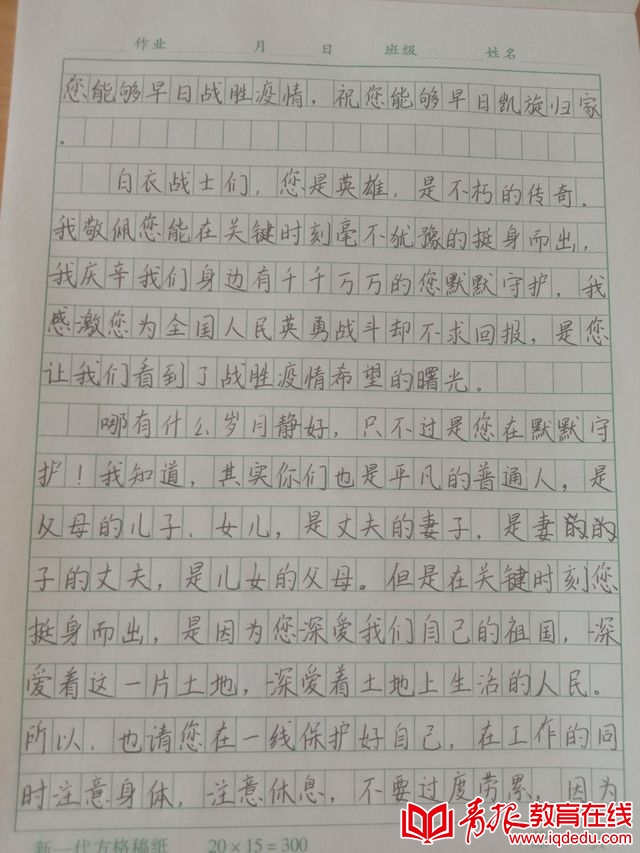 作业 月 日 班级 姓名
您能够早日战胜疫情，祝您能够早日凯旋归家
.
白衣战士们，您是英雄，是不朽的传奇.
我敬佩您能在关键时刻毫不犹豫的挺身而出，
我庆辛我们身边有千千万万的您默默守护，我
感激您为全国人民英勇战斗却不求回报，是您
让我们看到了战胜疫情希望的曙光。
哪有什么岁月静好，只不过是您在默默守
护！我知道，其实你们也是平凡的普通人，是
父母的儿子、女儿，是丈夫的妻子，是妻的
子的丈夫，是儿女的父母。但是在关键时刻您
挺身而出，是因为您深爱我们自己的祖国，深
爱着这一片土地，深爱着土地上生活的人民。
所以，也请您在一线保护好自己，在工作的同
时注意身体，注意休息，不要过度劳累，因为
新一代方格稿纸 20×15=300
青报教育在线
www.iqdedu.com